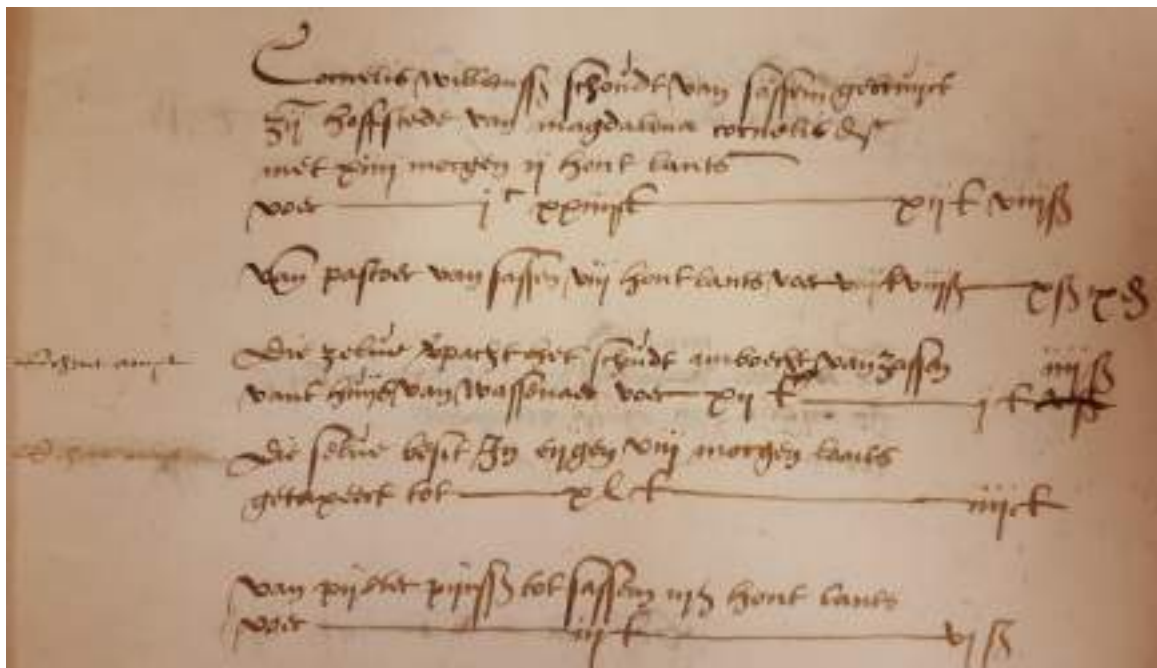 Cornelis willemsß schoudt van sassem gebruijct
zijn hoffstede van magdalena cornelis dr
met xiiii morgen ij hont lants
voer jc xxiiij £ xij £ viijß
Van pastoer van sassem viij hont lants voer ß xß xđ
Die zelue pacht het schoudt amboecht van zassem iiijß
vant huijs van wassenaer voer xij £ j £
Die selue besit In eijgen viij morgen lants
getaxeert tot xl £ iiij £
van pijeter ß tot sassem hont lants
voer iij £ vj ß